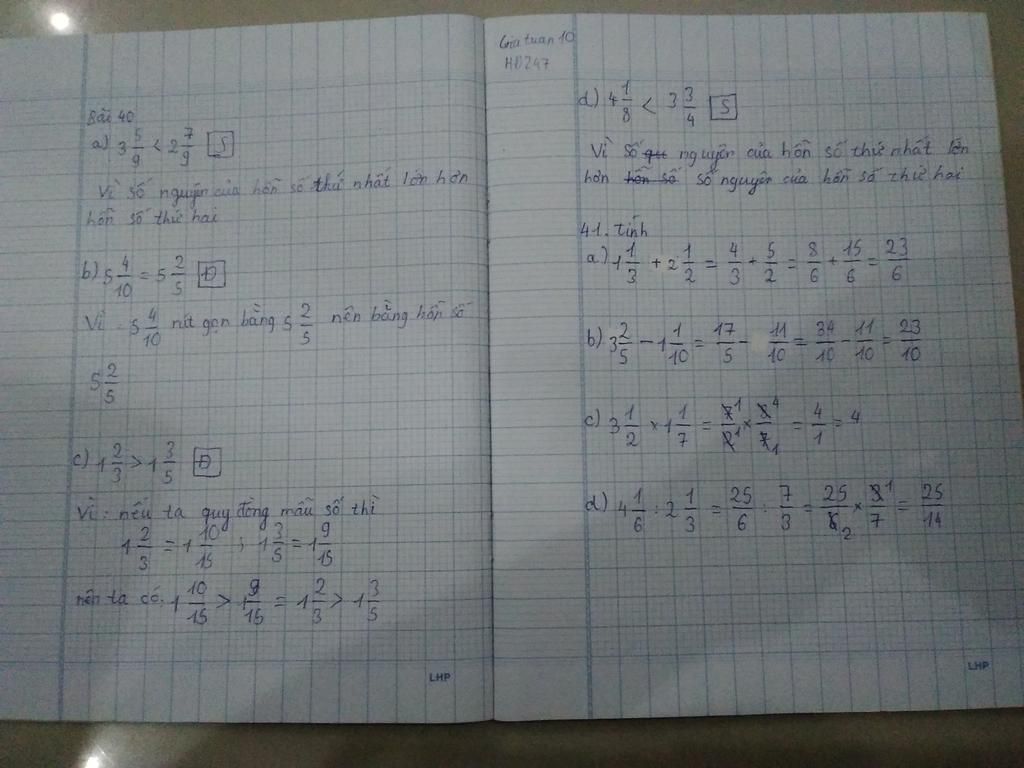 Bài 40
a) 3 5/9 < 2 7/9 [S]
Vì số nguyên của hỗn số thứ nhất lớn hơn
hỗn số thứ hai
b) 5 4/10 = 5 2/5 [Đ]
Vì: 5 4/10 rút gọn bằng 5 2/5 nên bằng hỗn số
5 2/5
c) 1 2/3 > 1 3/5 [Đ]
Vì: nếu ta quy đồng mẫu số thì
1 2/3 = 1 10/15 ; 1 3/5 = 1 9/15
nên ta có: 1 10/15 > 1 9/15 = 1 2/3 > 1 3/5
LHP
Gia tuan 10
HD247
d) 4 1/8 < 3 3/4 [S]
Vì số nguyên của hỗn số thứ nhất lớn
hơn hỗn số số nguyên của hỗn số thứ hai
41. Tính
a) 1 1/3 + 2 1/2 = 4/3 + 5/2 = 8/6 + 15/6 = 23/6
b) 3 2/5 - 1 1/10 = 17/5 - 11/10 = 34/10 - 11/10 = 23/10
c) 3 1/2 × 1 1/7 = 7/2 × 8/7 = 4/1 = 4
d) 4 1/6 : 2 1/3 = 25/6 : 7/3 = 25/6 × 3/7 = 25/14
LHP